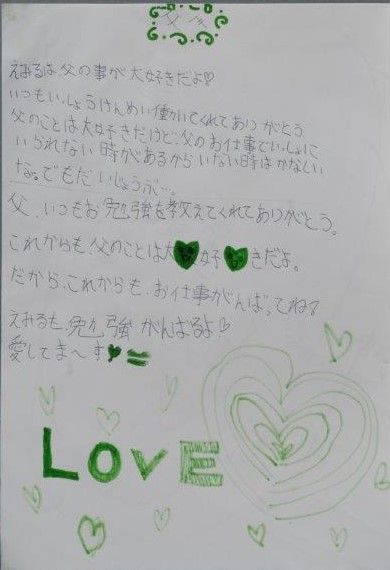 父へ
えみるは父の事が大好きだよ♡
いつもいっしょうけんめい働いてくれてありがとう
父のことは大好きだけど、父のお仕事でいっしょに
いられない時があるからいない時はかなしい
な。でもだいじょうぶ…。
父、いつもお勉強を教えてくれてありがとう。
これからも、父のことは大♥好♥きだよ。
だから、これからも、お仕事がんばってね?
えみるも、勉強がんばるよ♡
愛してま〜す♥
LOVE